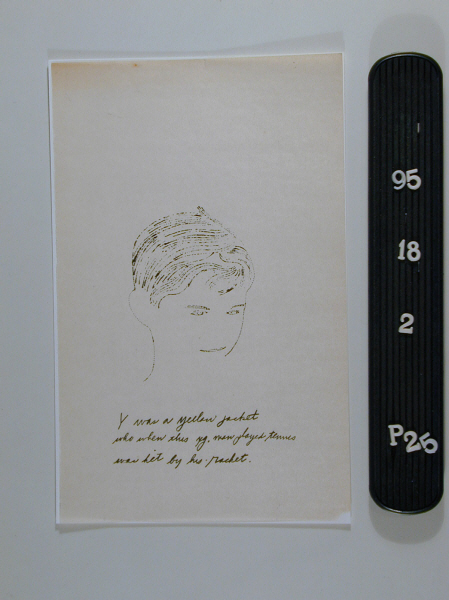 Y was a yellow jacket
who when this yg. man played tennis
was hit by his racket.
95
18
2
P25